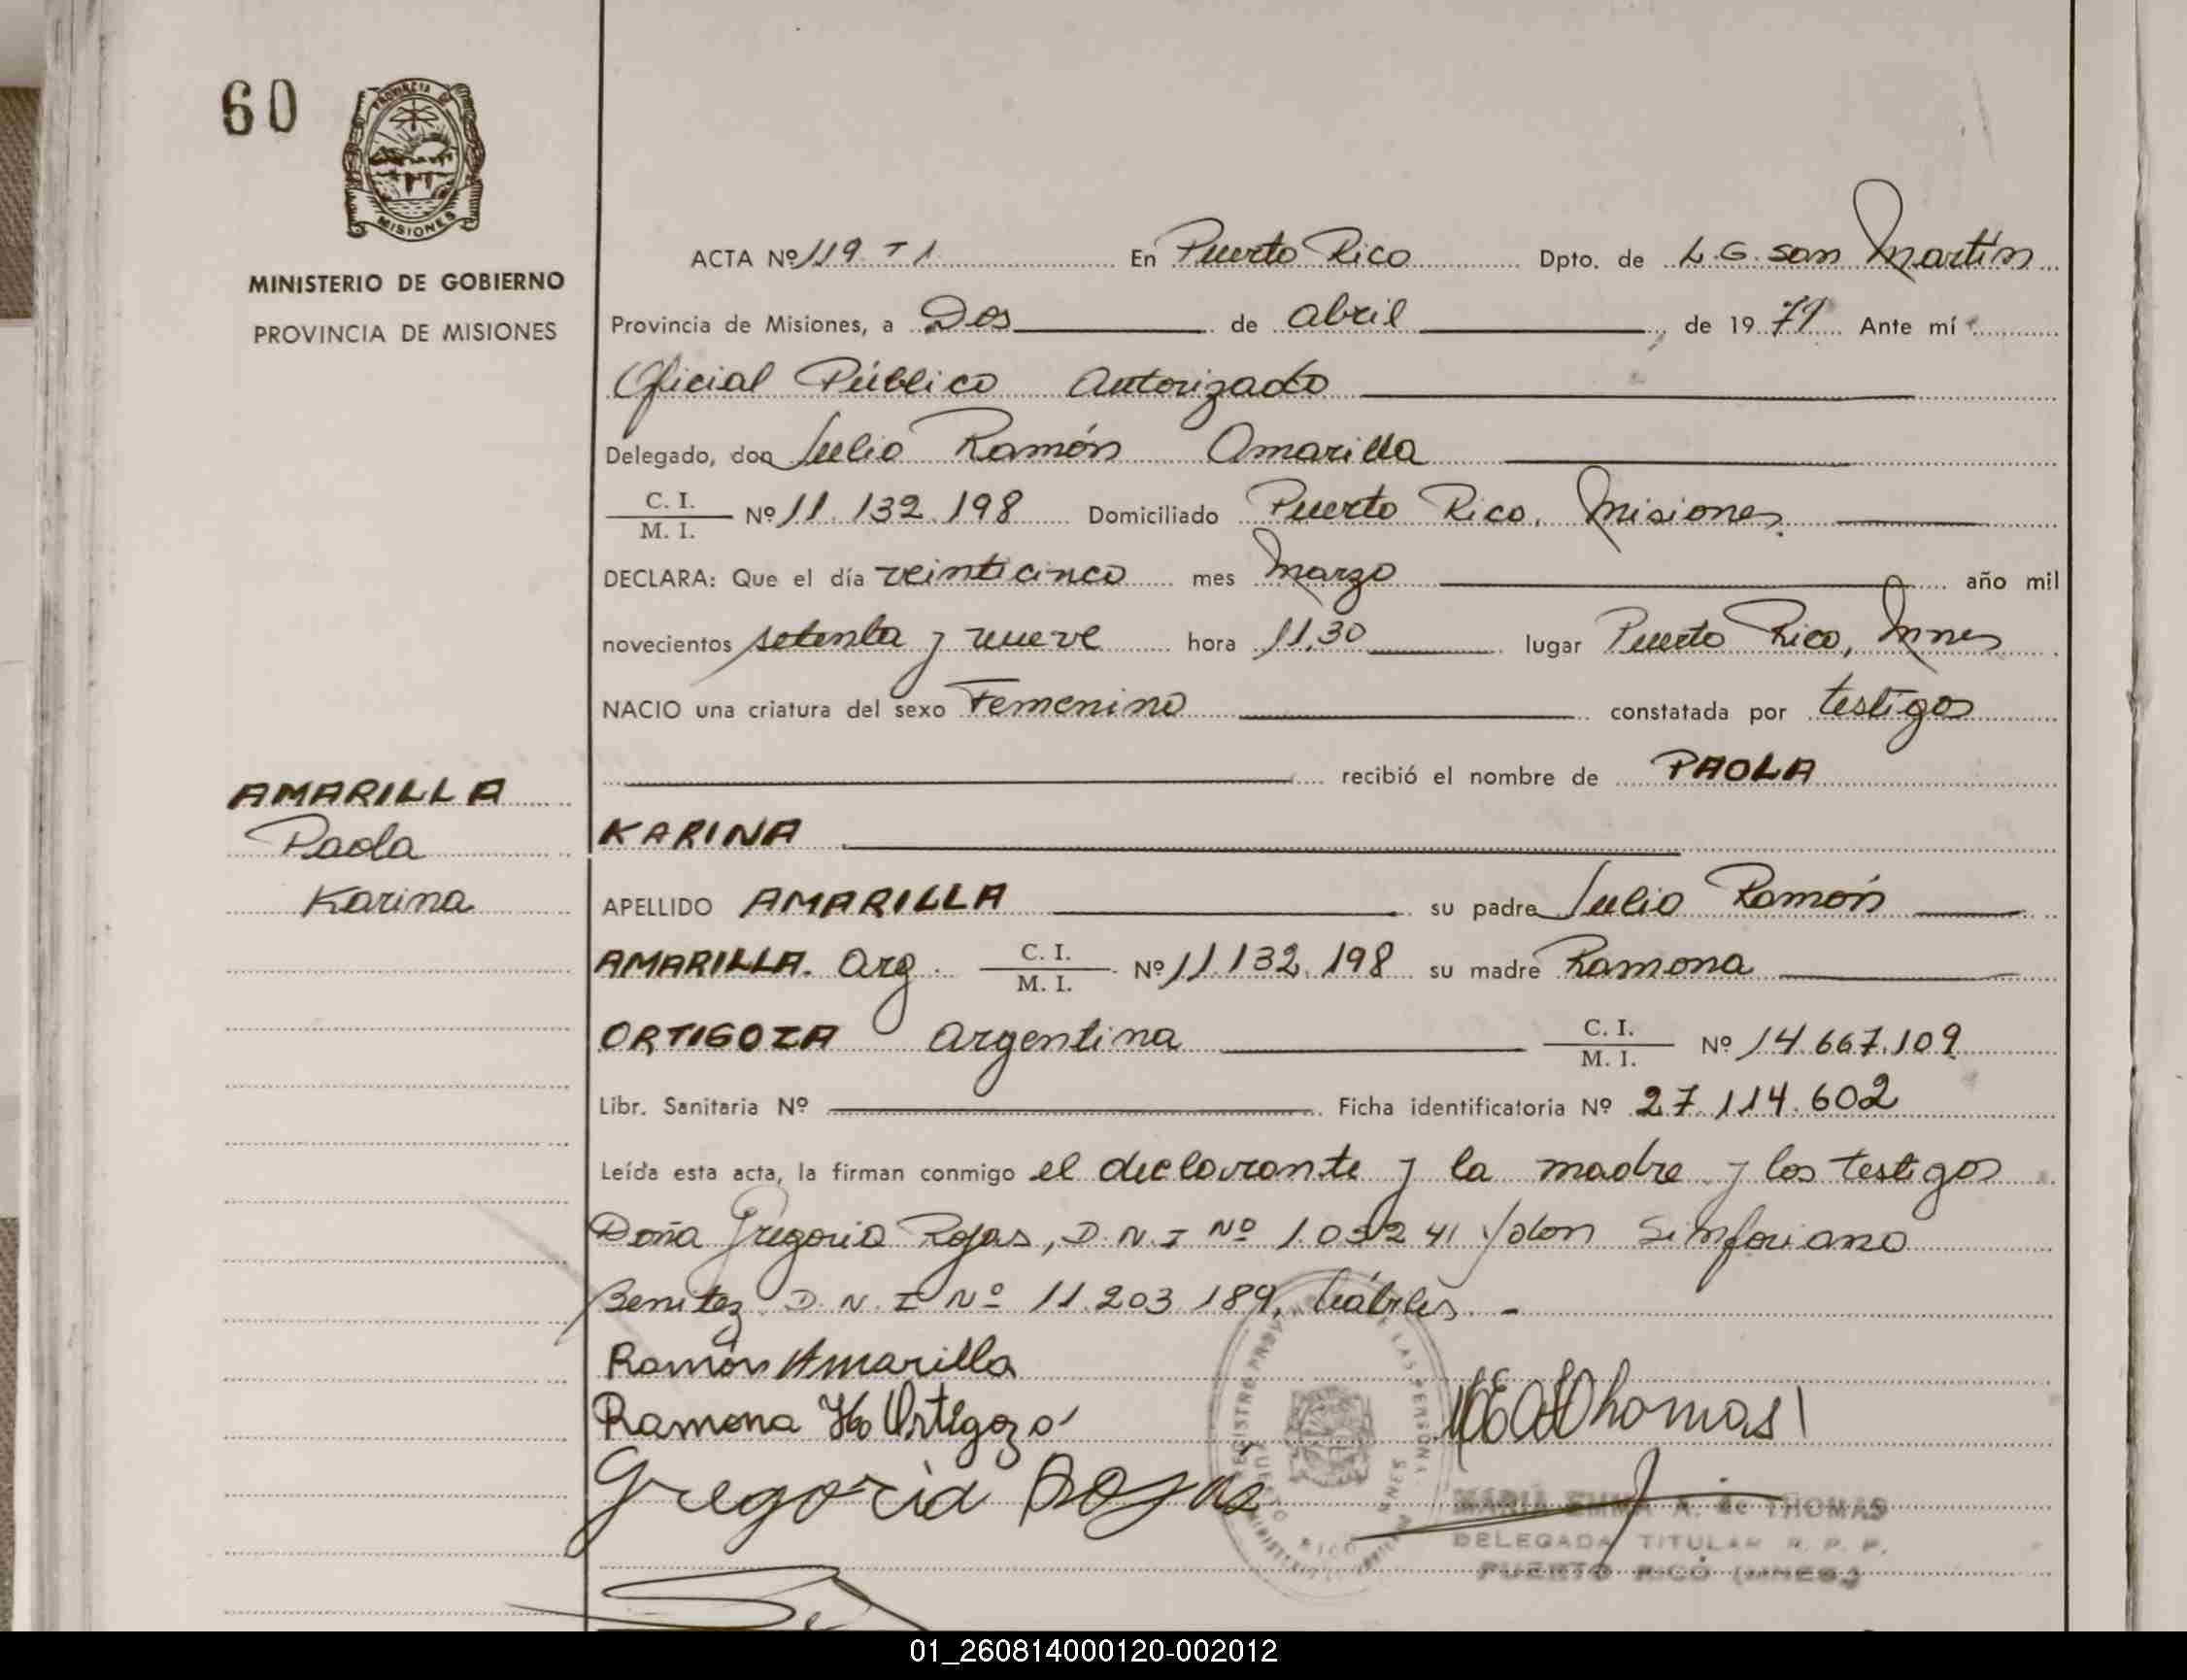 60
PROVINCIA DE
MISIONES
MINISTERIO DE GOBIERNO
PROVINCIA DE MISIONES
ACTA Nº 119 T 1 En Puerto Rico Dpto. de L.G. san Martín
Provincia de Misiones, a Dos de abril de 1979 Ante mí
Oficial Público Autorizado
Delegado, don Julio Ramón Amarilla
C. I.
M. I. Nº 11.132.198 Domiciliado Puerto Rico, Misiones
DECLARA: Que el día veinticinco mes Marzo año mil
novecientos setenta y nueve hora 11,30 lugar Puerto Rico, Mnes
NACIO una criatura del sexo Femenino constatada por testigos
recibió el nombre de PAOLA
KARINA
AMARILLA
Paola
Karina
APELLIDO AMARILLA su padre Julio Ramón
AMARILLA. Arg. C. I.
M. I. Nº 11.132.198 su madre Ramona
ORTIGOZA Argentina C. I.
M. I. Nº 14.667.109
Libr. Sanitaria Nº Ficha identificatoria Nº 27.114.602
Leída esta acta, la firman conmigo el declarante y la madre y los testigos
Doña Gregoria Rojas, D.N.I Nº y don Simforiano
Benitez D.N.I Nº 11.203.189, hábiles -
Ramón Amarilla
Ramona Ortigoza
Gregoria Rojas
Thomas
MARIA EMMA A. de THOMAS
DELEGADA TITULAR R. P. P.
PUERTO RICO (MNES.)
01_260814000120-002012